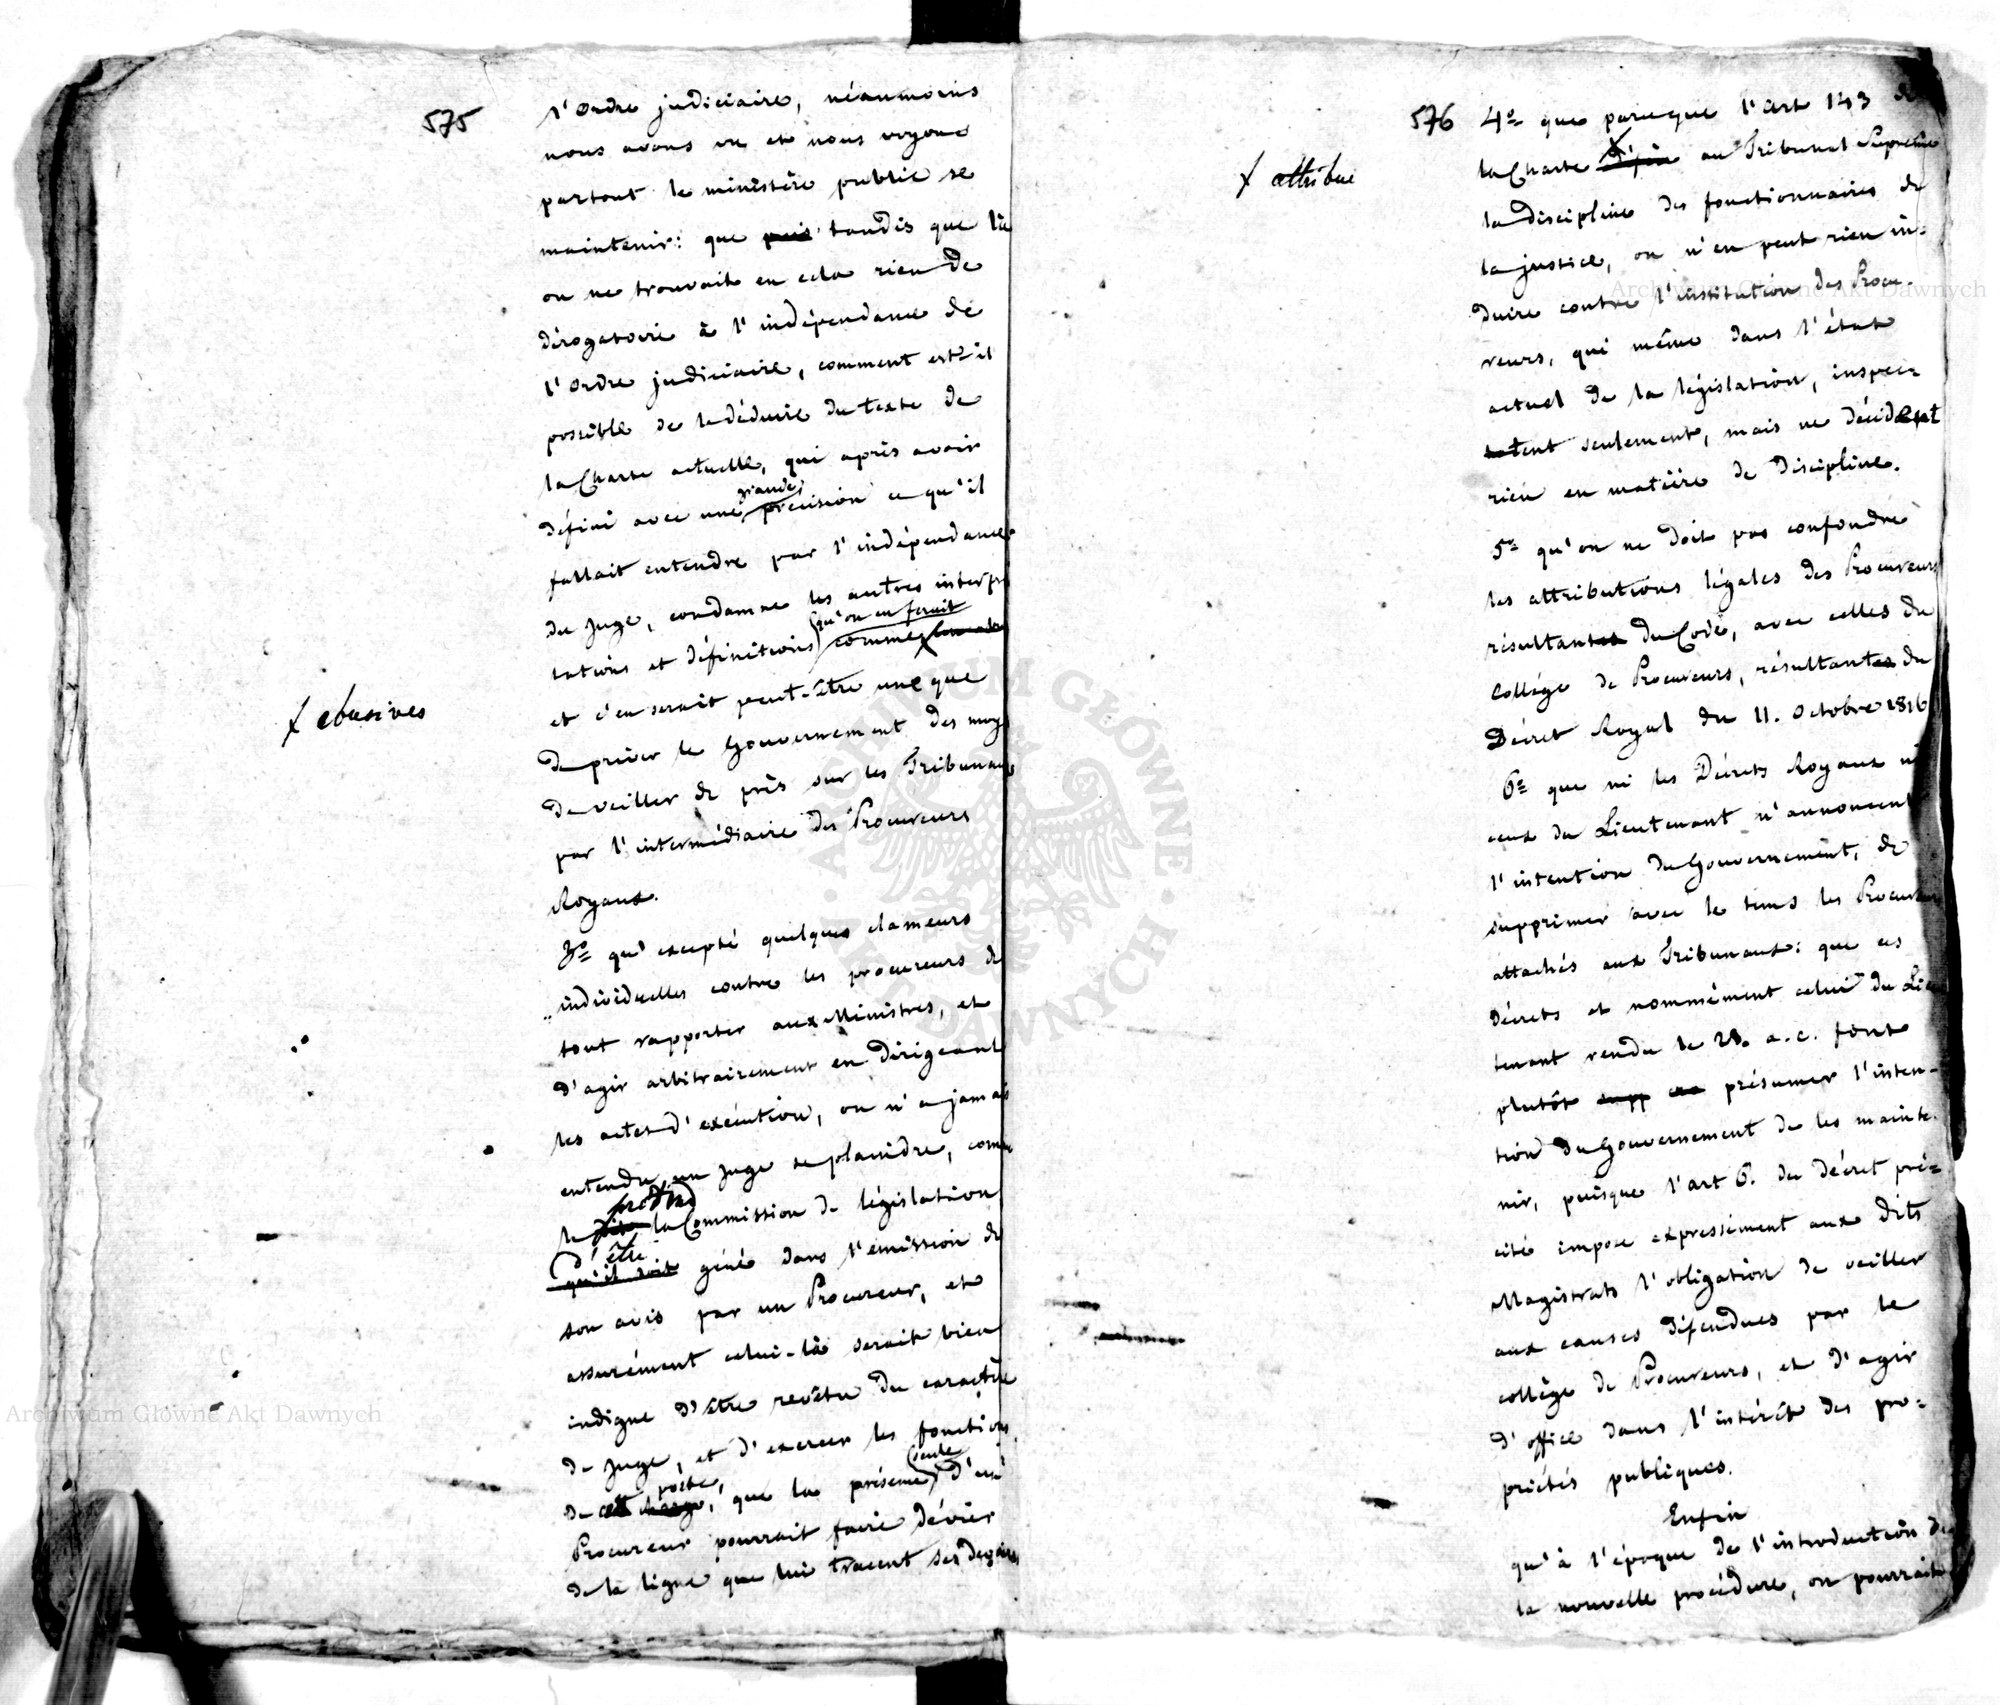 575
l'Ordre judiciaire, néanmoins
nous avons vu et nous voyons
partout le ministère public se
maintenir: que puis tandis que là
on ne trouvait en cela rien de
dérogatoire à l'indépendance de
l'Ordre judiciaire, comment est-il
possible de le déduire du texte de
la Charte actuelle, qui après avoir
grande
défini avec une précision ce qu'il
fallait entendre par l'indépendance
du juge, condamne les autres interpré
qu'on en ferait
tations et définitions comme
X abusives
et c'en serait peut-être une que
de priver le Gouvernement des moy
de veiller de près sur les Tribunaux
par l'intermédiaire des Procureurs
Royaux.
3o qu'excepté quelques clameurs
individuelles contre les procureurs de
tout rapporter aux Ministres, et
d'agir arbitrairement en dirigeant
les actes d'exécution, on n'a jamais
entendu un juge se plaindre, comme
prétend
le dit la Commission de législation
d'être
qu'il soit gêné dans l'émission de
son avis par un Procureur, et
assurément celui-là serait bien
indigne d'être revêtu du caractère
de juge, et d'exercer les fonctions
poste, seule
de cet charge, que la présence d'un
Procureur pourrait faire dévier
de la ligne que lui tracent ses devoirs
576
4o que parceque l'art 143 de
la Charte au Tribunal Suprême
X attribue
la discipline des fonctionnaires de
la justice, on n'en peut rien in-
duire contre l'institution des Procu-
reurs, qui même dans l'état
actuel de la législation, inspec-
tatent seulement, mais ne décident
rien en matière de discipline.
5o qu'on ne doit pas confondre
les attributions légales des Procureurs
résultantes du Code, avec celles du
Collége de Procureurs, résultantes du
Décret Royal du 11. Octobre 1816
6o que ni les Décrets Royaux ni
ceux du Lieutenant n'annoncent
l'intention du Gouvernement, de
supprimer avec le tems les Procureurs
attachés aux Tribunaux: que ces
décrets et nommément celui du Lieu
tenant rendu le 28. a.c. font
plutôt supp présumer l'inten-
tion du Gouvernement de les mainte-
nir, puisque l'art 6. du décret pré-
cité impose expressément aux dits
Magistrats l'obligation de veiller
aux causes défendues par le
collège de Procureurs, et d'agir
d'office dans l'intérêt des pro-
priétés publiques.
Enfin
qu'à l'époque de l'introduction de
la nouvelle procédure, on pourrait
ARCHIWUM GŁÓWNE AKT DAWNYCH
Archiwum Główne Akt Dawnych
Archiwum Główne Akt Dawnych